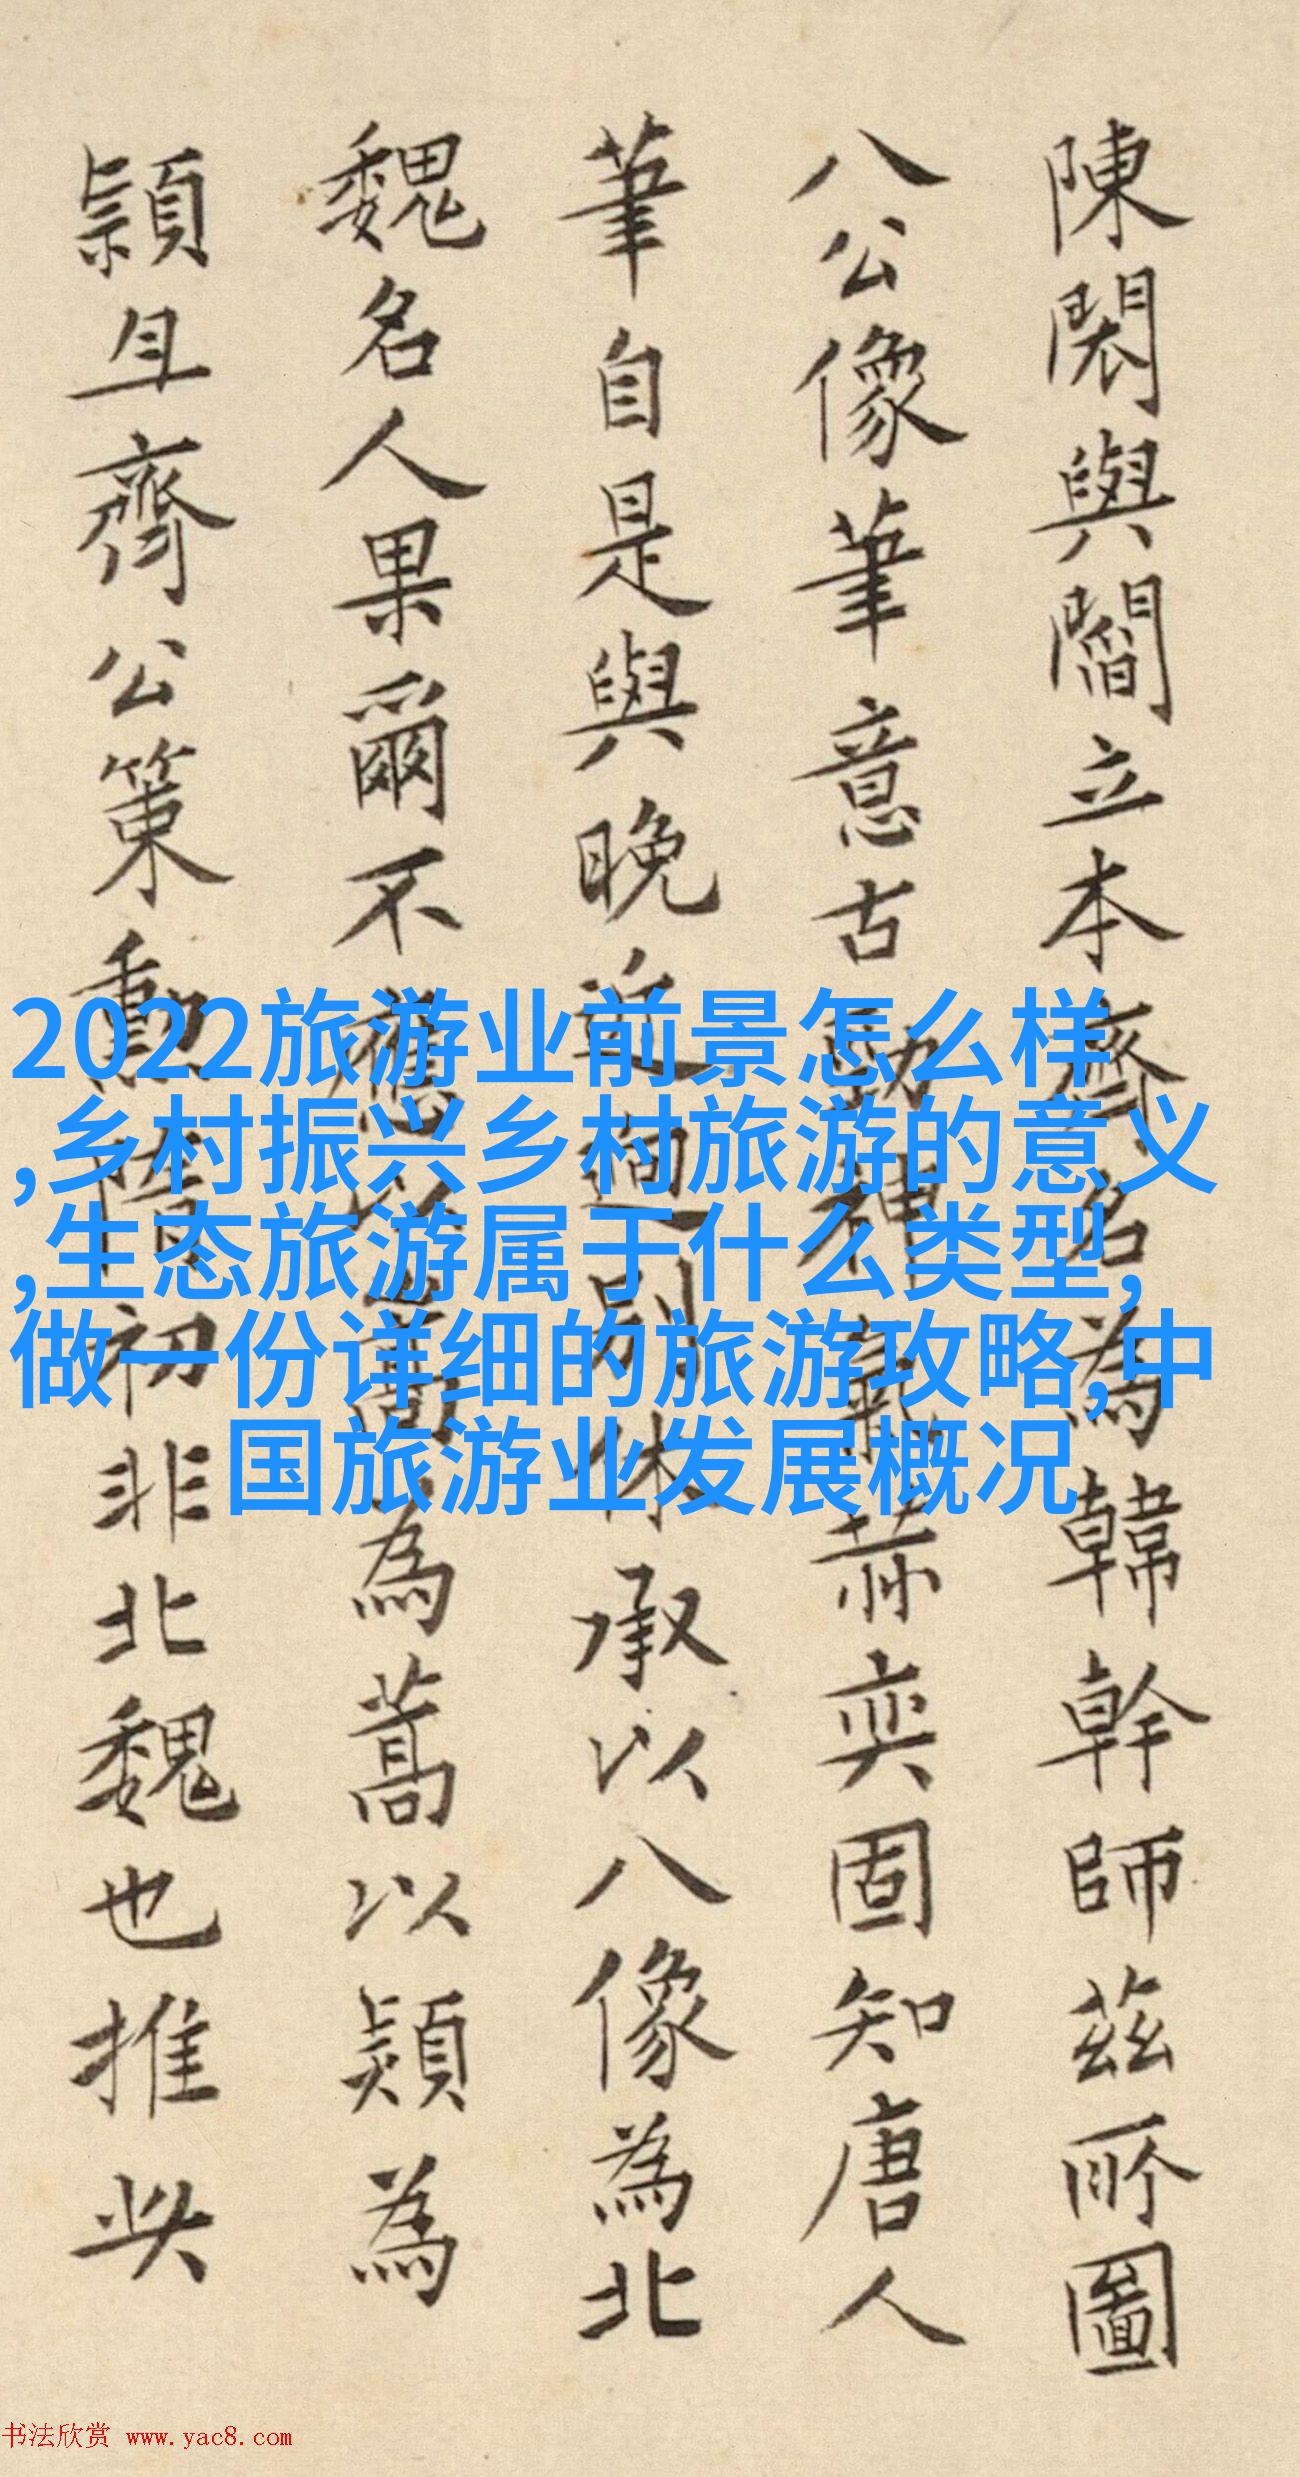 陳閎與閻立本齊名為韓幹師茲所圖
八公像筆意古勁神氣赫奕固知唐人
筆自是與晚近迥別休承以八像為北
魏名人果爾不應以高為蒿以熲為
頴且齊公策勳隋初非北魏也推
2022旅游业前景怎么样
,乡村振兴乡村旅游的意义
,生态旅游属于什么类型,
做一份详细的旅游攻略,中
国旅游业发展概况
书法欣赏 www.yac8.com